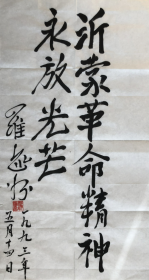 沂蒙革命精神
永放光芒
羅
一九九三年
五月十四日